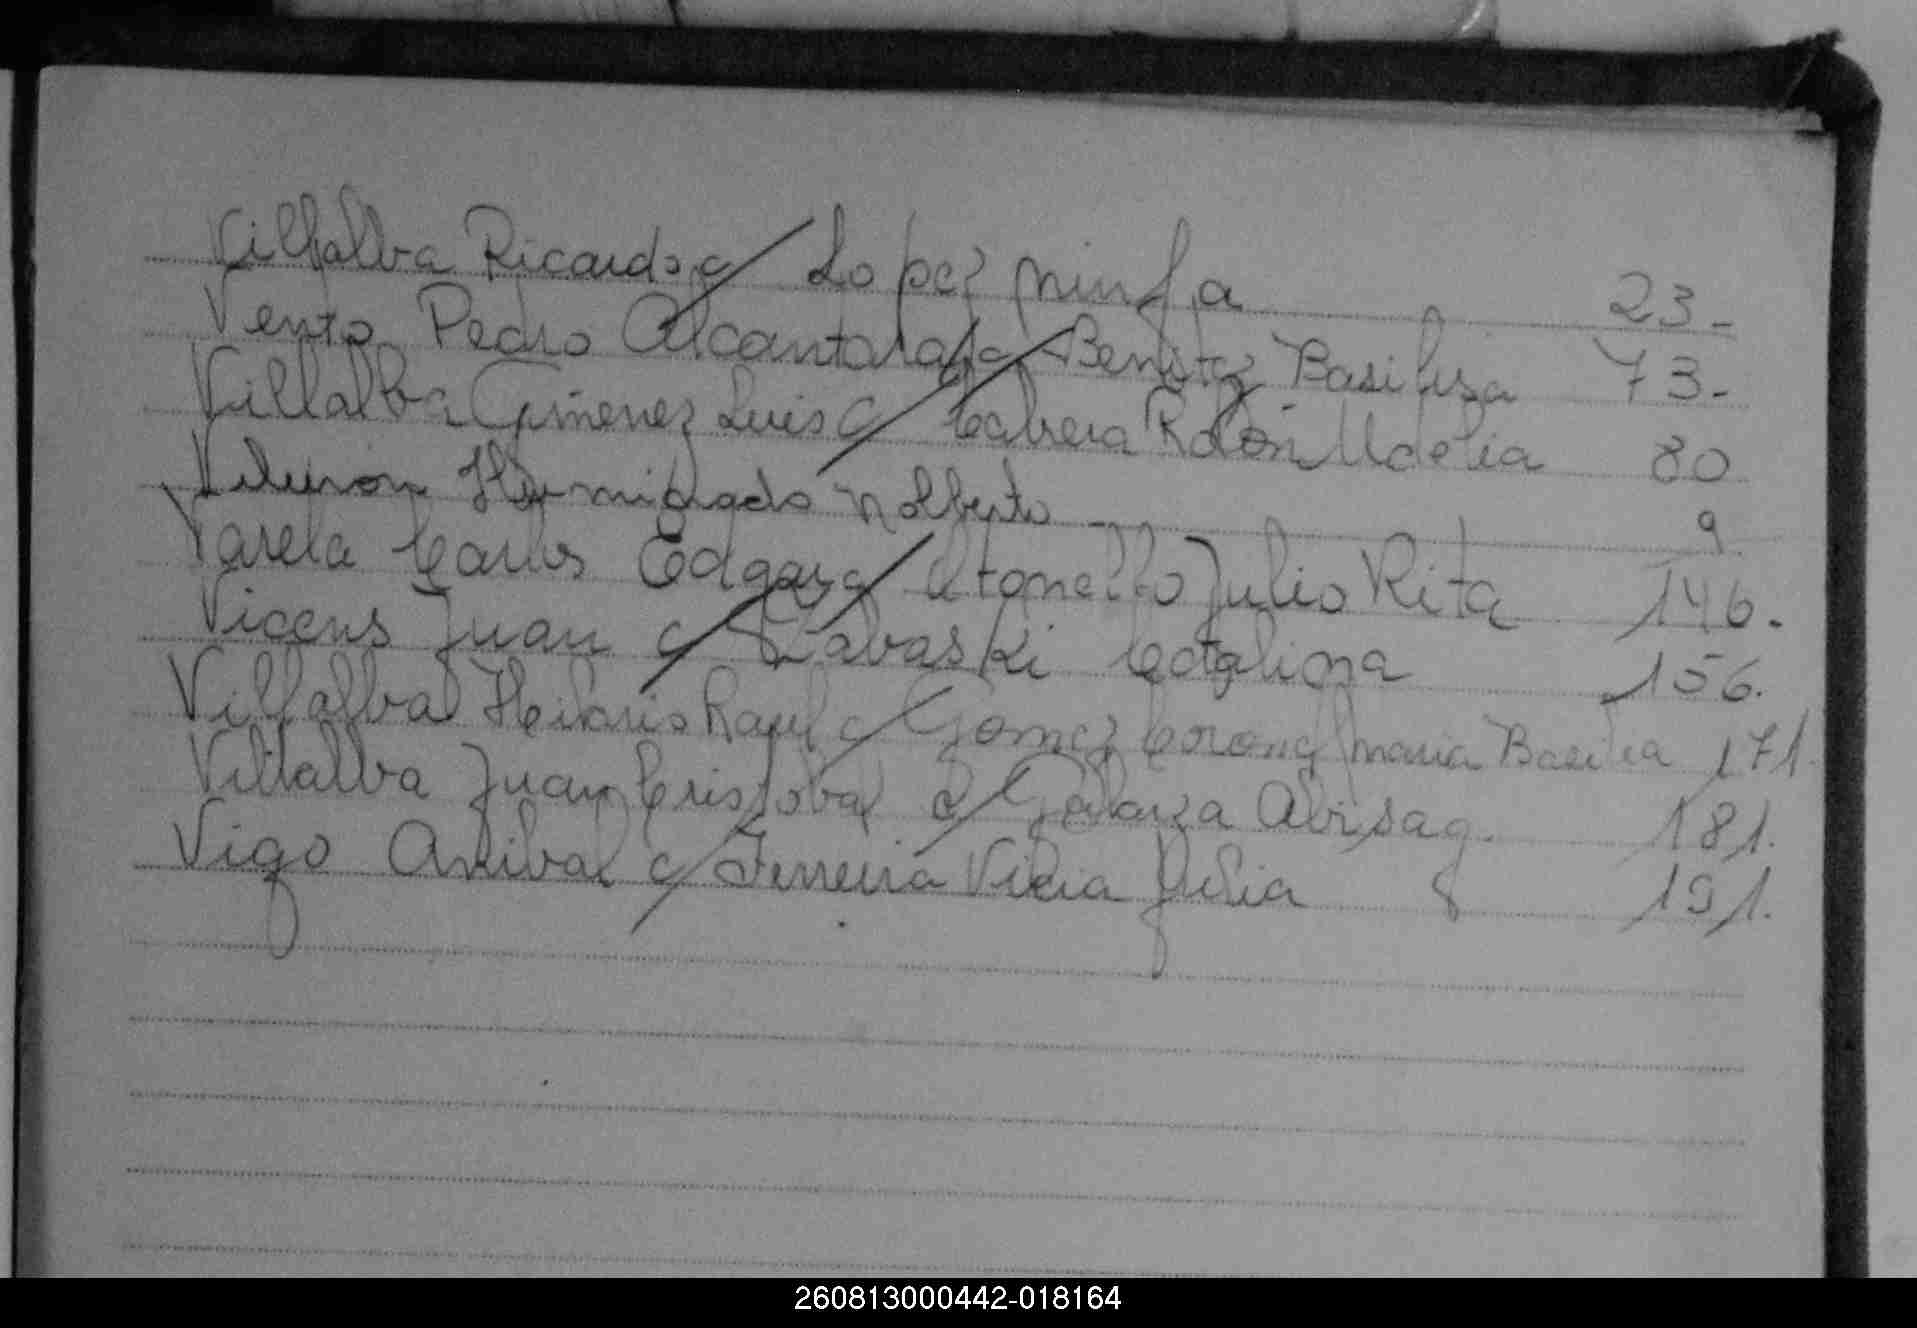 Villalba Ricardo c/ Lopez Ninfa 23-
Vento Pedro Alcantara c/ Benitez Basilisa 73-
Villalba Gimenez Luis c/ Cabrera Rolón Udelia 80
Norberto 9
Varela Carlos Edgar c/ Julio Rita 146.
Vicens Juan c/ Zabaski Catalina 156.
Villalba Hilario Raul c/ Gomez Coronel Maria Basilia 171.
Villalba Juan Cristobal c/ Galarza Abisag. 181.
Vigo Anibal c/ Ferreira Vilia Julia 191.
260813000442-018164